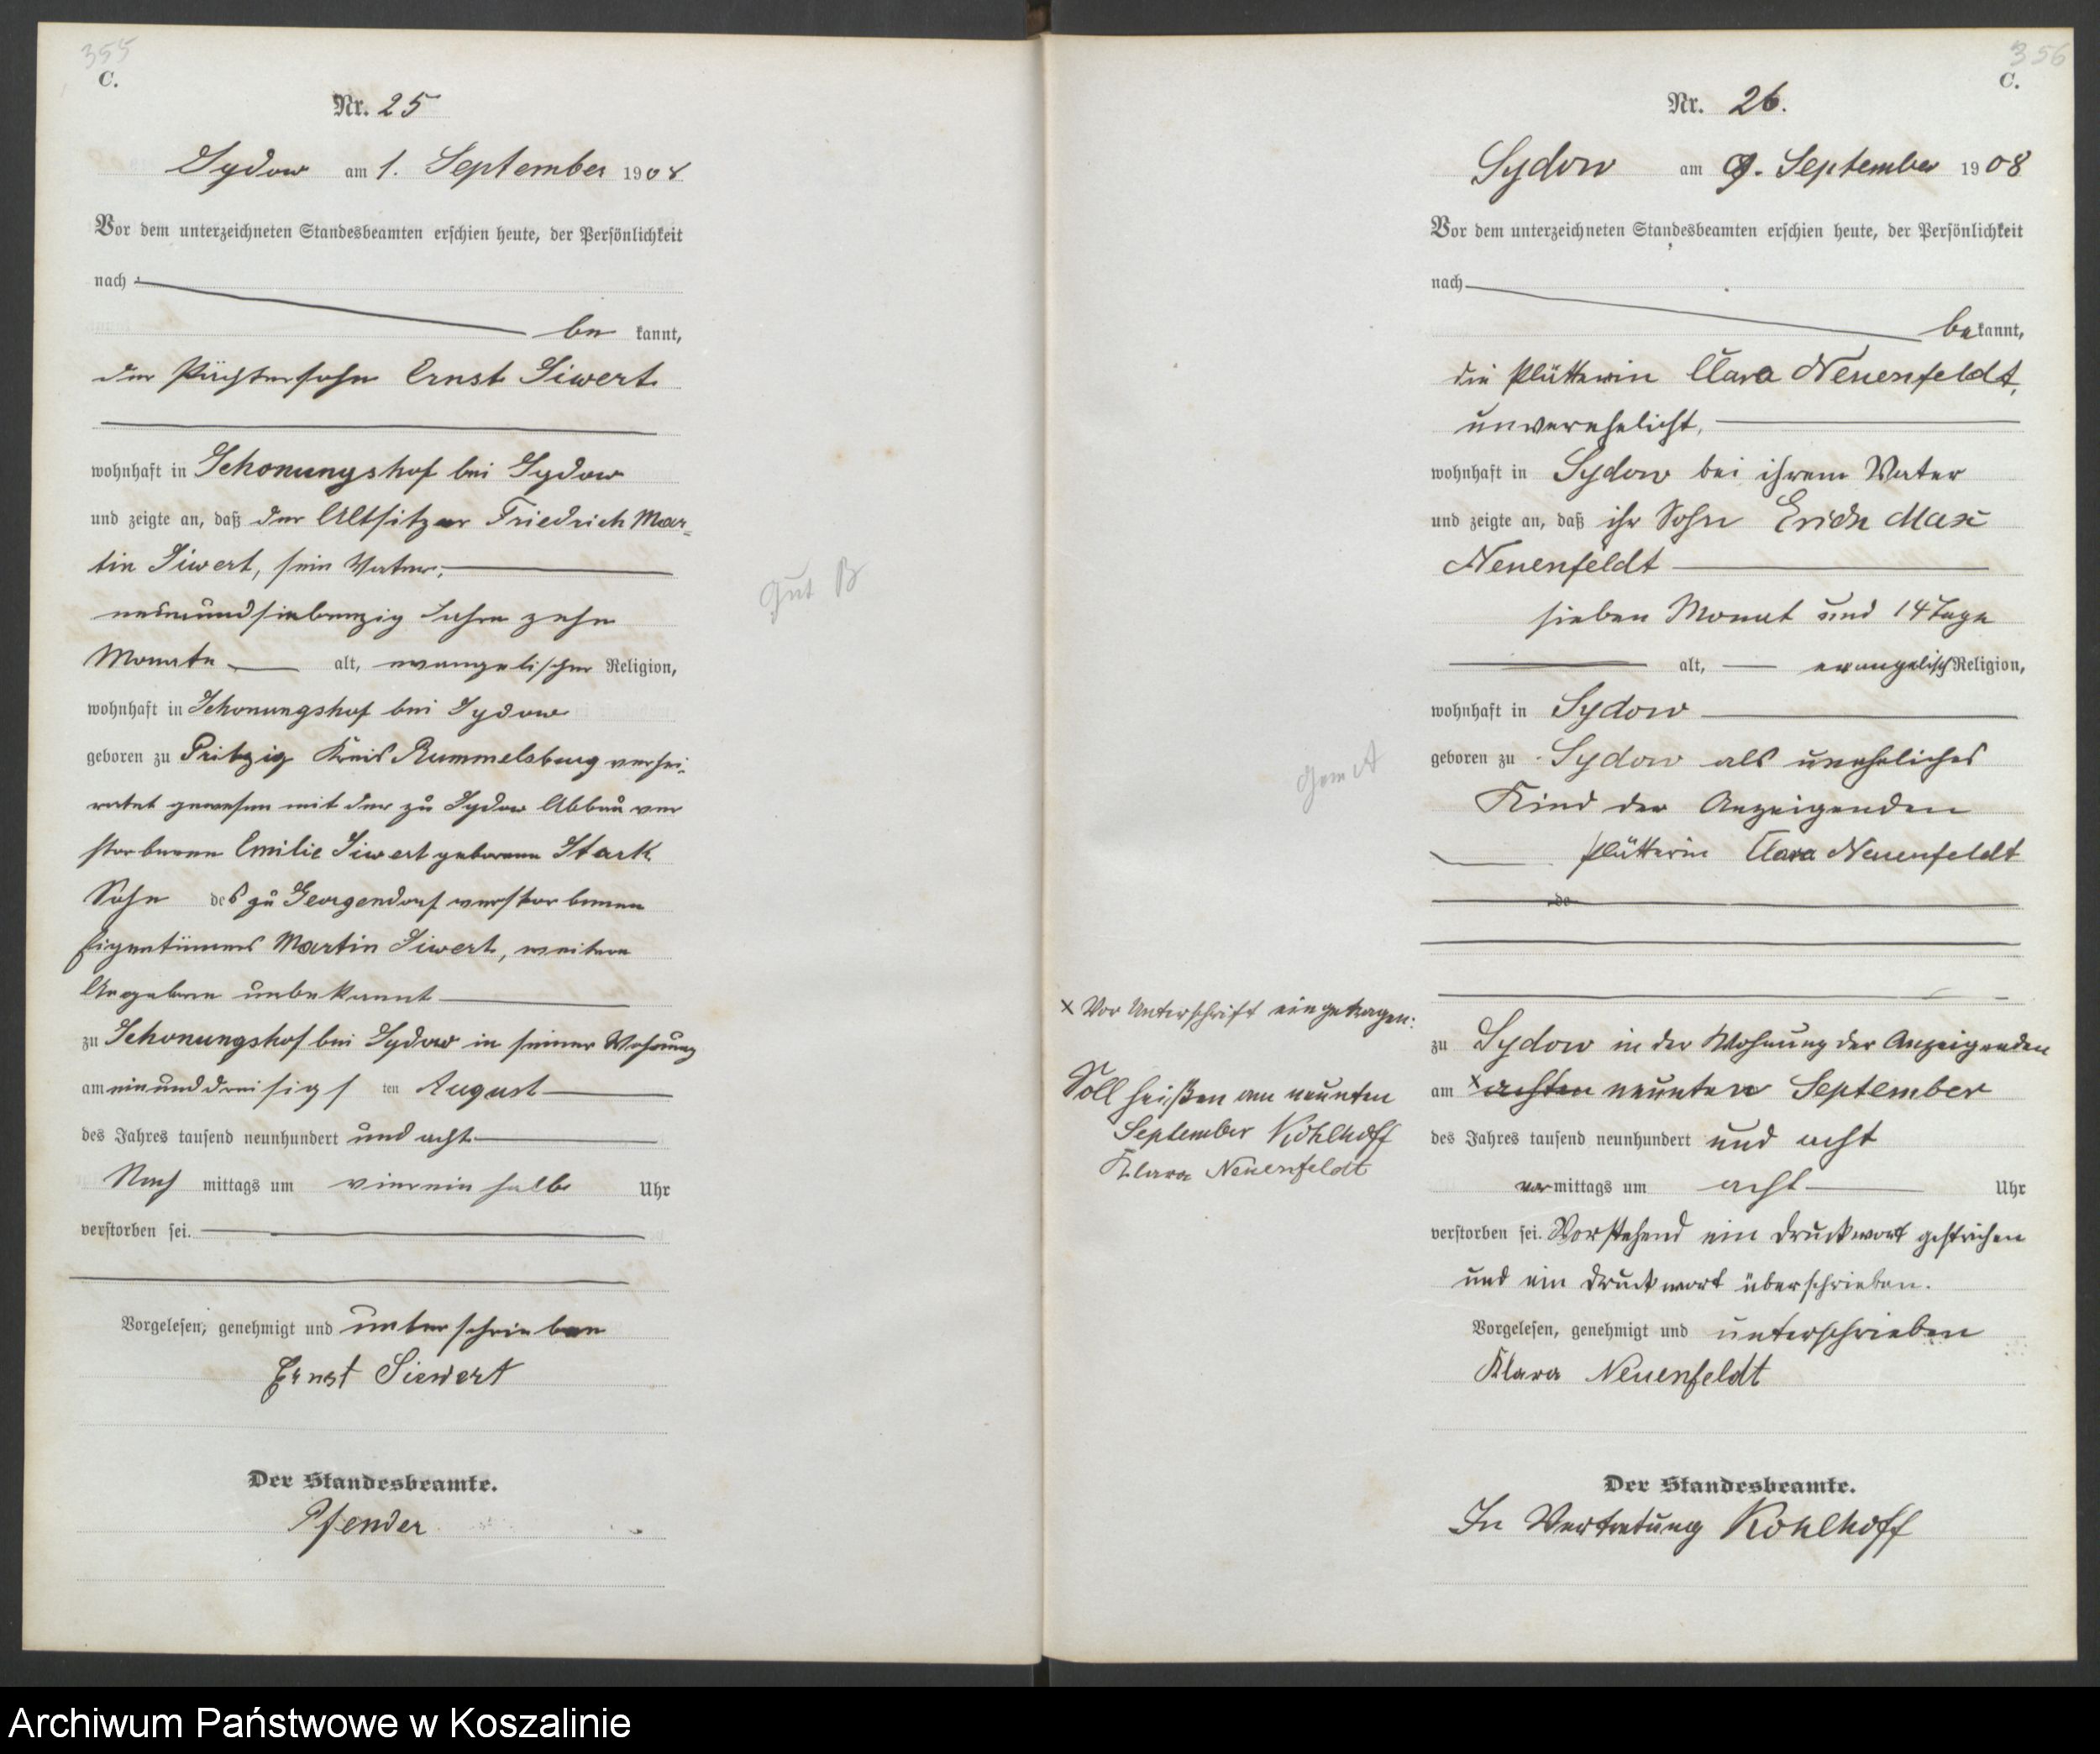 355
C.
Nr. 25
Sydow am 1. September 1908
Vor dem unterzeichneten Standesbeamten erschien heute, der Persönlichkeit
nach
be kannt,
der Pächtersohn Ernst Siwert
wohnhaft in Schonungshof bei Sydow
und zeigte an, daß der Altsitzer Friedrich Mar-
tin Siwert, sein Vater,
neunundsiebenzig Jahre zehn
Monate alt, evangelischer Religion,
wohnhaft in Schonungshof bei Sydow
geboren zu Pritzig Kreis Rummelsburg verhei-
ratet gewesen mit der zu Sydow Abbau ver
storbenen Emilie Siwert geborene Stark
Sohn des zu Georgendorf verstorbenen
Eigentümers Martin Siwert, weitere
Angaben unbekannt
zu Schonungshof bei Sydow in seiner Wohnung
am einunddreisigs ten August
des Jahres tausend neunhundert und acht
Nach mittags um viereinhalb Uhr
verstorben sei.
Vorgelesen, genehmigt und unterschrieben
Ernst Siewert
Der Standesbeamte.
Pfender
Gut B
356
C.
Nr. 26.
Sydow am 9. September 1908
Vor dem unterzeichneten Standesbeamten erschien heute, der Persönlichkeit
nach
be kannt,
die Plätterin Clara Neuenfeldt,
unverehelicht,
wohnhaft in Sydow bei ihrem Vater
und zeigte an, daß ihr Sohn Erich Max
Neuenfeldt
sieben Monat und 14 Tage
alt, evangelisch Religion,
wohnhaft in Sydow
geboren zu Sydow als uneheliches
Kind der Anzeigenden
Plätterin Clara Neuenfeldt
de
zu Sydow in der Wohnung der Anzeigenden
am x achten neunten September
des Jahres tausend neunhundert und acht
vor mittags um acht Uhr
verstorben sei. Vorstehend ein Druckwort gestrichen
und ein Druckwort überschrieben.
Vorgelesen, genehmigt und unterschrieben
Klara Neuenfeldt
Der Standesbeamte.
In Vertretung Kohlhoff
Gem A
x Vor Unterschrift eingetragen:
Soll heißen am neunten
September Kohlhoff
Klara Neuenfeldt
Archiwum Państwowe w Koszalinie